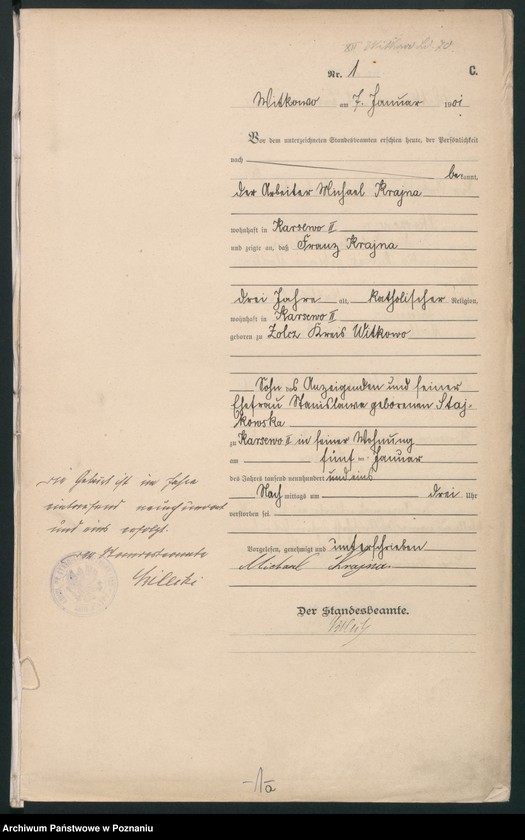 Nr. 1 C.
Witkowo am 7. Januar 1901
Vor dem unterzeichneten Standesbeamten erschien heute, der Persönlichkeit
nach
bekannt,
der Arbeiter Michael Krajna
wohnhaft in Karsewo II
und zeigte an, daß Franz Krajna
drei Jahre alt, katholischer Religion,
wohnhaft in Karsewo II
geboren zu Zolcz Kreis Witkowo
Sohn des Anzeigenden und seiner
Ehefrau Stanislawa geborenen Staj-
kowska
zu Karsewo II in seiner Wohnung
am fünf ten Januar
des Jahres tausend neunhundert und eins
Nach mittags um drei Uhr
verstorben sei.
Vorgelesen, genehmigt und unterschrieben
Michael Krajna.
Der Standesbeamte.
Die Geburt ist im Jahre
und eins erfolgt.
1a
Archiwum Państwowe w Poznaniu